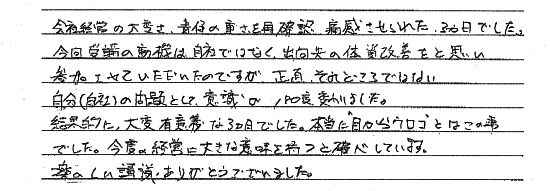 会社経営の大変さ、責任の重さを再確認、痛感させられた、3日でした。
今回受講の動機は自社ではなく、出向先の体質改善をと思い
参加させていただいたのですが、正直、それどころではない
自分(自社)の問題として、意識が、180度変わりました。
結果的に、大変有意義な3日でした。本当に"目からウロコ"とはこの事
でした。今後の経営に大きな意味を持つと確信しています。
楽しい講義、ありがとうございました。